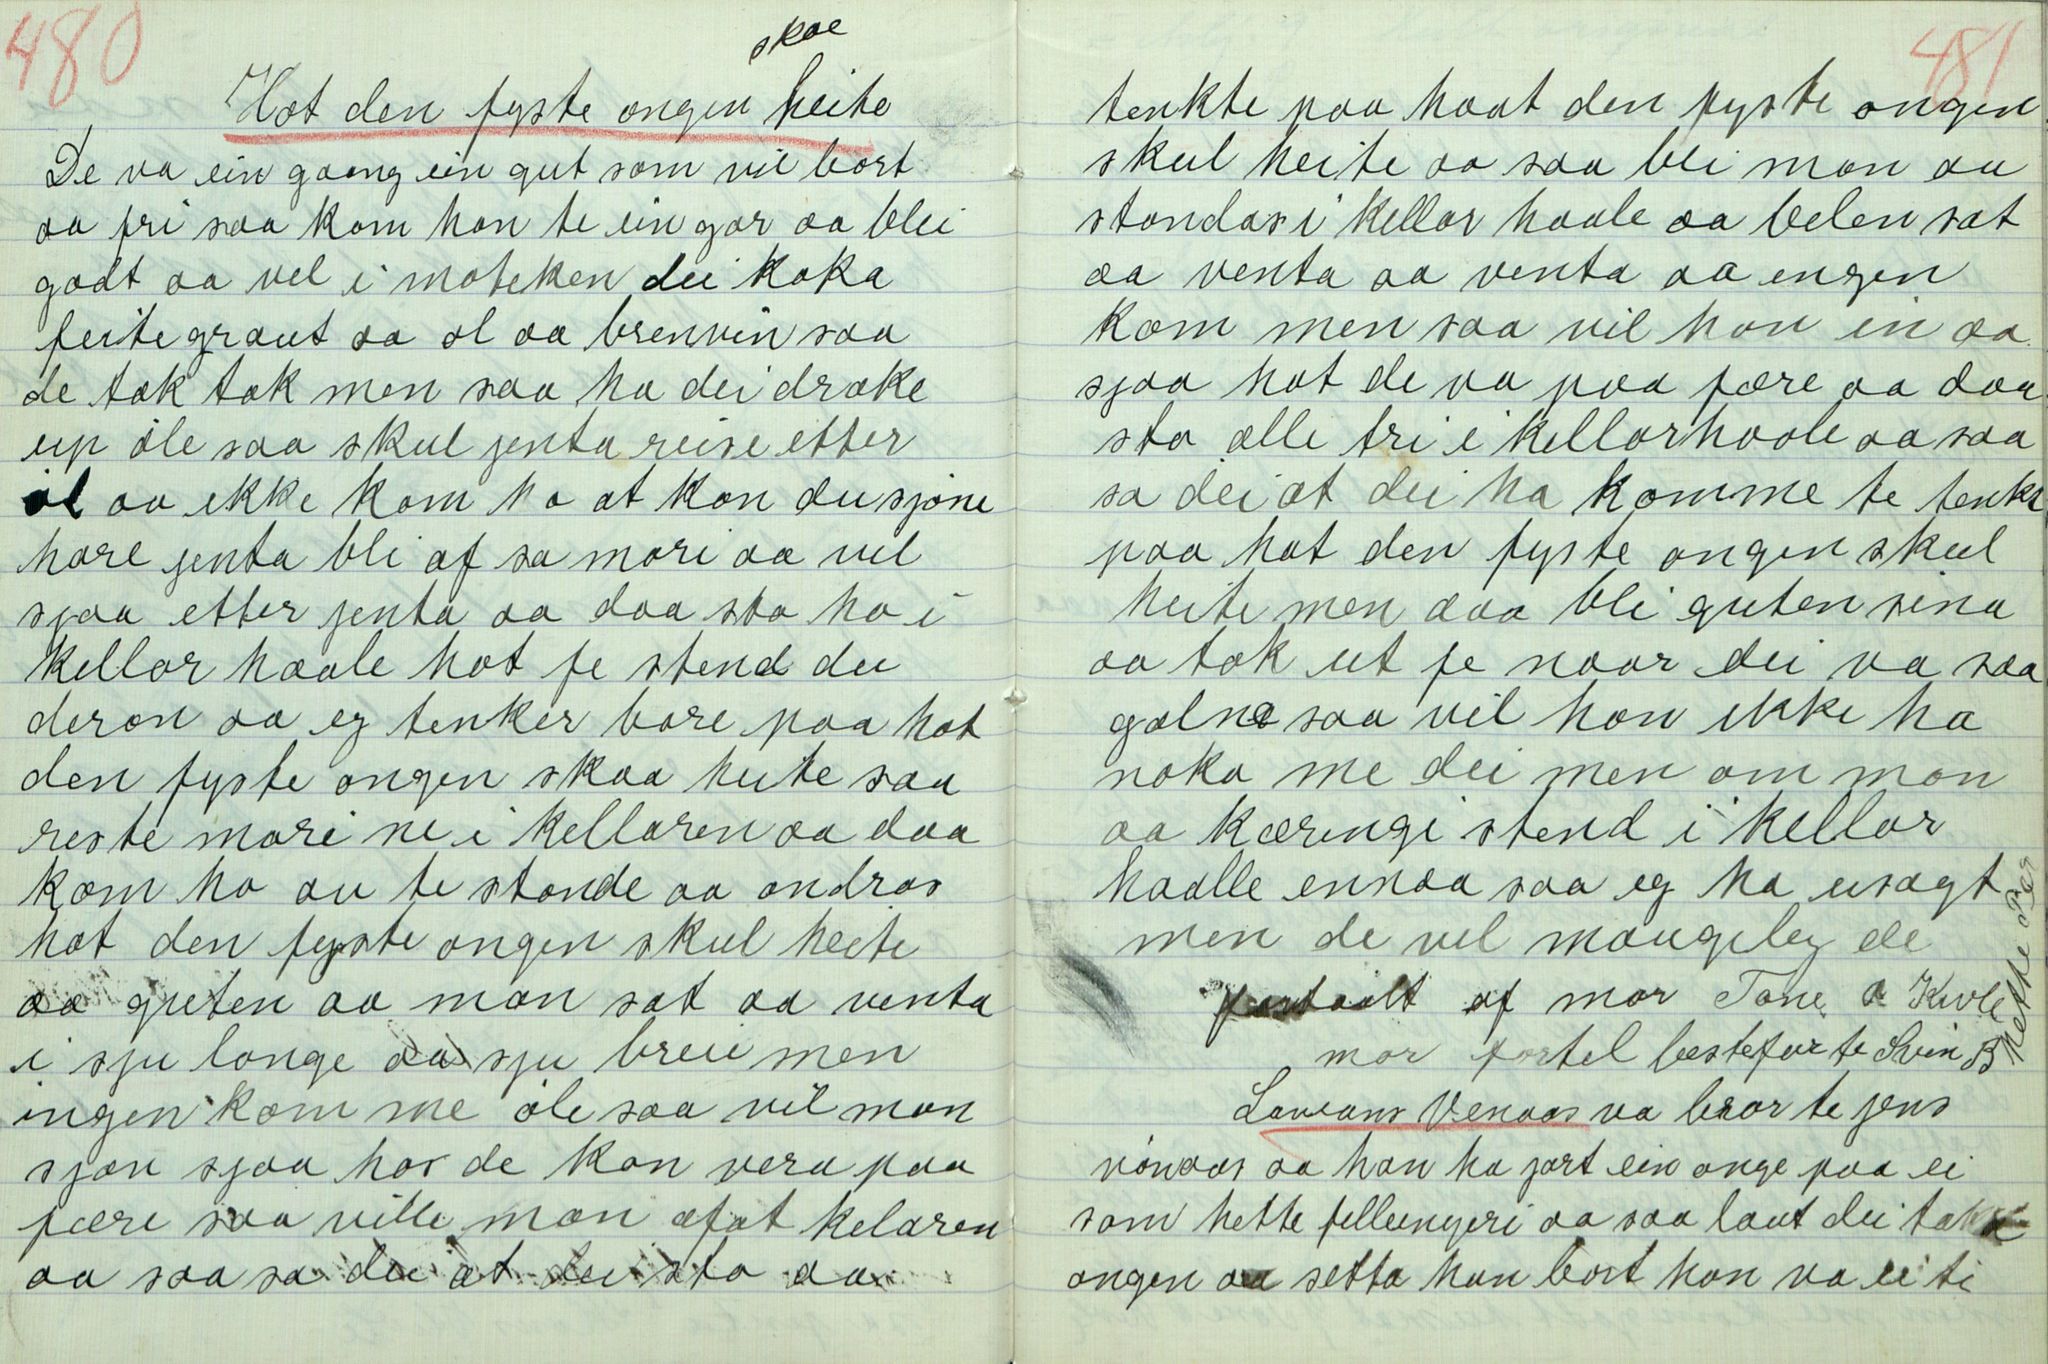 480
skae
Hot den fyste ongen heite
De va ein goong ein gut som vil bort
aa fri saa kom han te ein gar aa blei
godt aa vel i moteken dei koka
feitegraut aa ol aa brenvin saa
de tok tok men saa ha dei drake
up öle saa skul jenta reise etter
öl aa ikke kom ho at kon du sjöne
hare jenta bli af sa mori aa vil
sjaa etter jenta aa daa sto ho i
kellar haale hot fe stend du
deron aa eg tenker bare paa hot
den fyste ongen skaa heite saa
reste mori ne i kellaren aa daa
kom ho au te stonde aa ondras
hot den fyste ongen skul heite
aa guten aa man sat aa venta
i sju longe aa sju breie men
ingen kom me öle saa vil man
sjøn sjaa hos de kan vera paa
fære saa ville man afat kelaren
aa saa sa dei at dei sto aa
481
tenkte paa haat den fyste ongen
skul heite aa saa bli man au
stondas i kellar haale aa belen sat
aa venta aa venta aa engen
kom men saa vil han in aa
sjaa hot de va paa fære aa daa
sto alle tri i kellarhaale aa saa
sa dei at dei ha komme te tenke
paa hot den fyste ongen skul
heite men daa bli guten sina
aa tok ut fe naar dei va saa
galne saa vil han ikke ha
noka me dei men om man
aa kæringi stend i kellar
haalle ennaa saa eg ha usagt
men de vel mougeleg de
fortailt af mor Tone a Kivle
mor fortel bestefar te Svin B
Mette Per
Laurans Venaas va bror te jens
vönaas aa han ha jort ein onge paa ei
som hette felleungeri aa saa laut dei take
ongen aa setta han bort han va ei ti